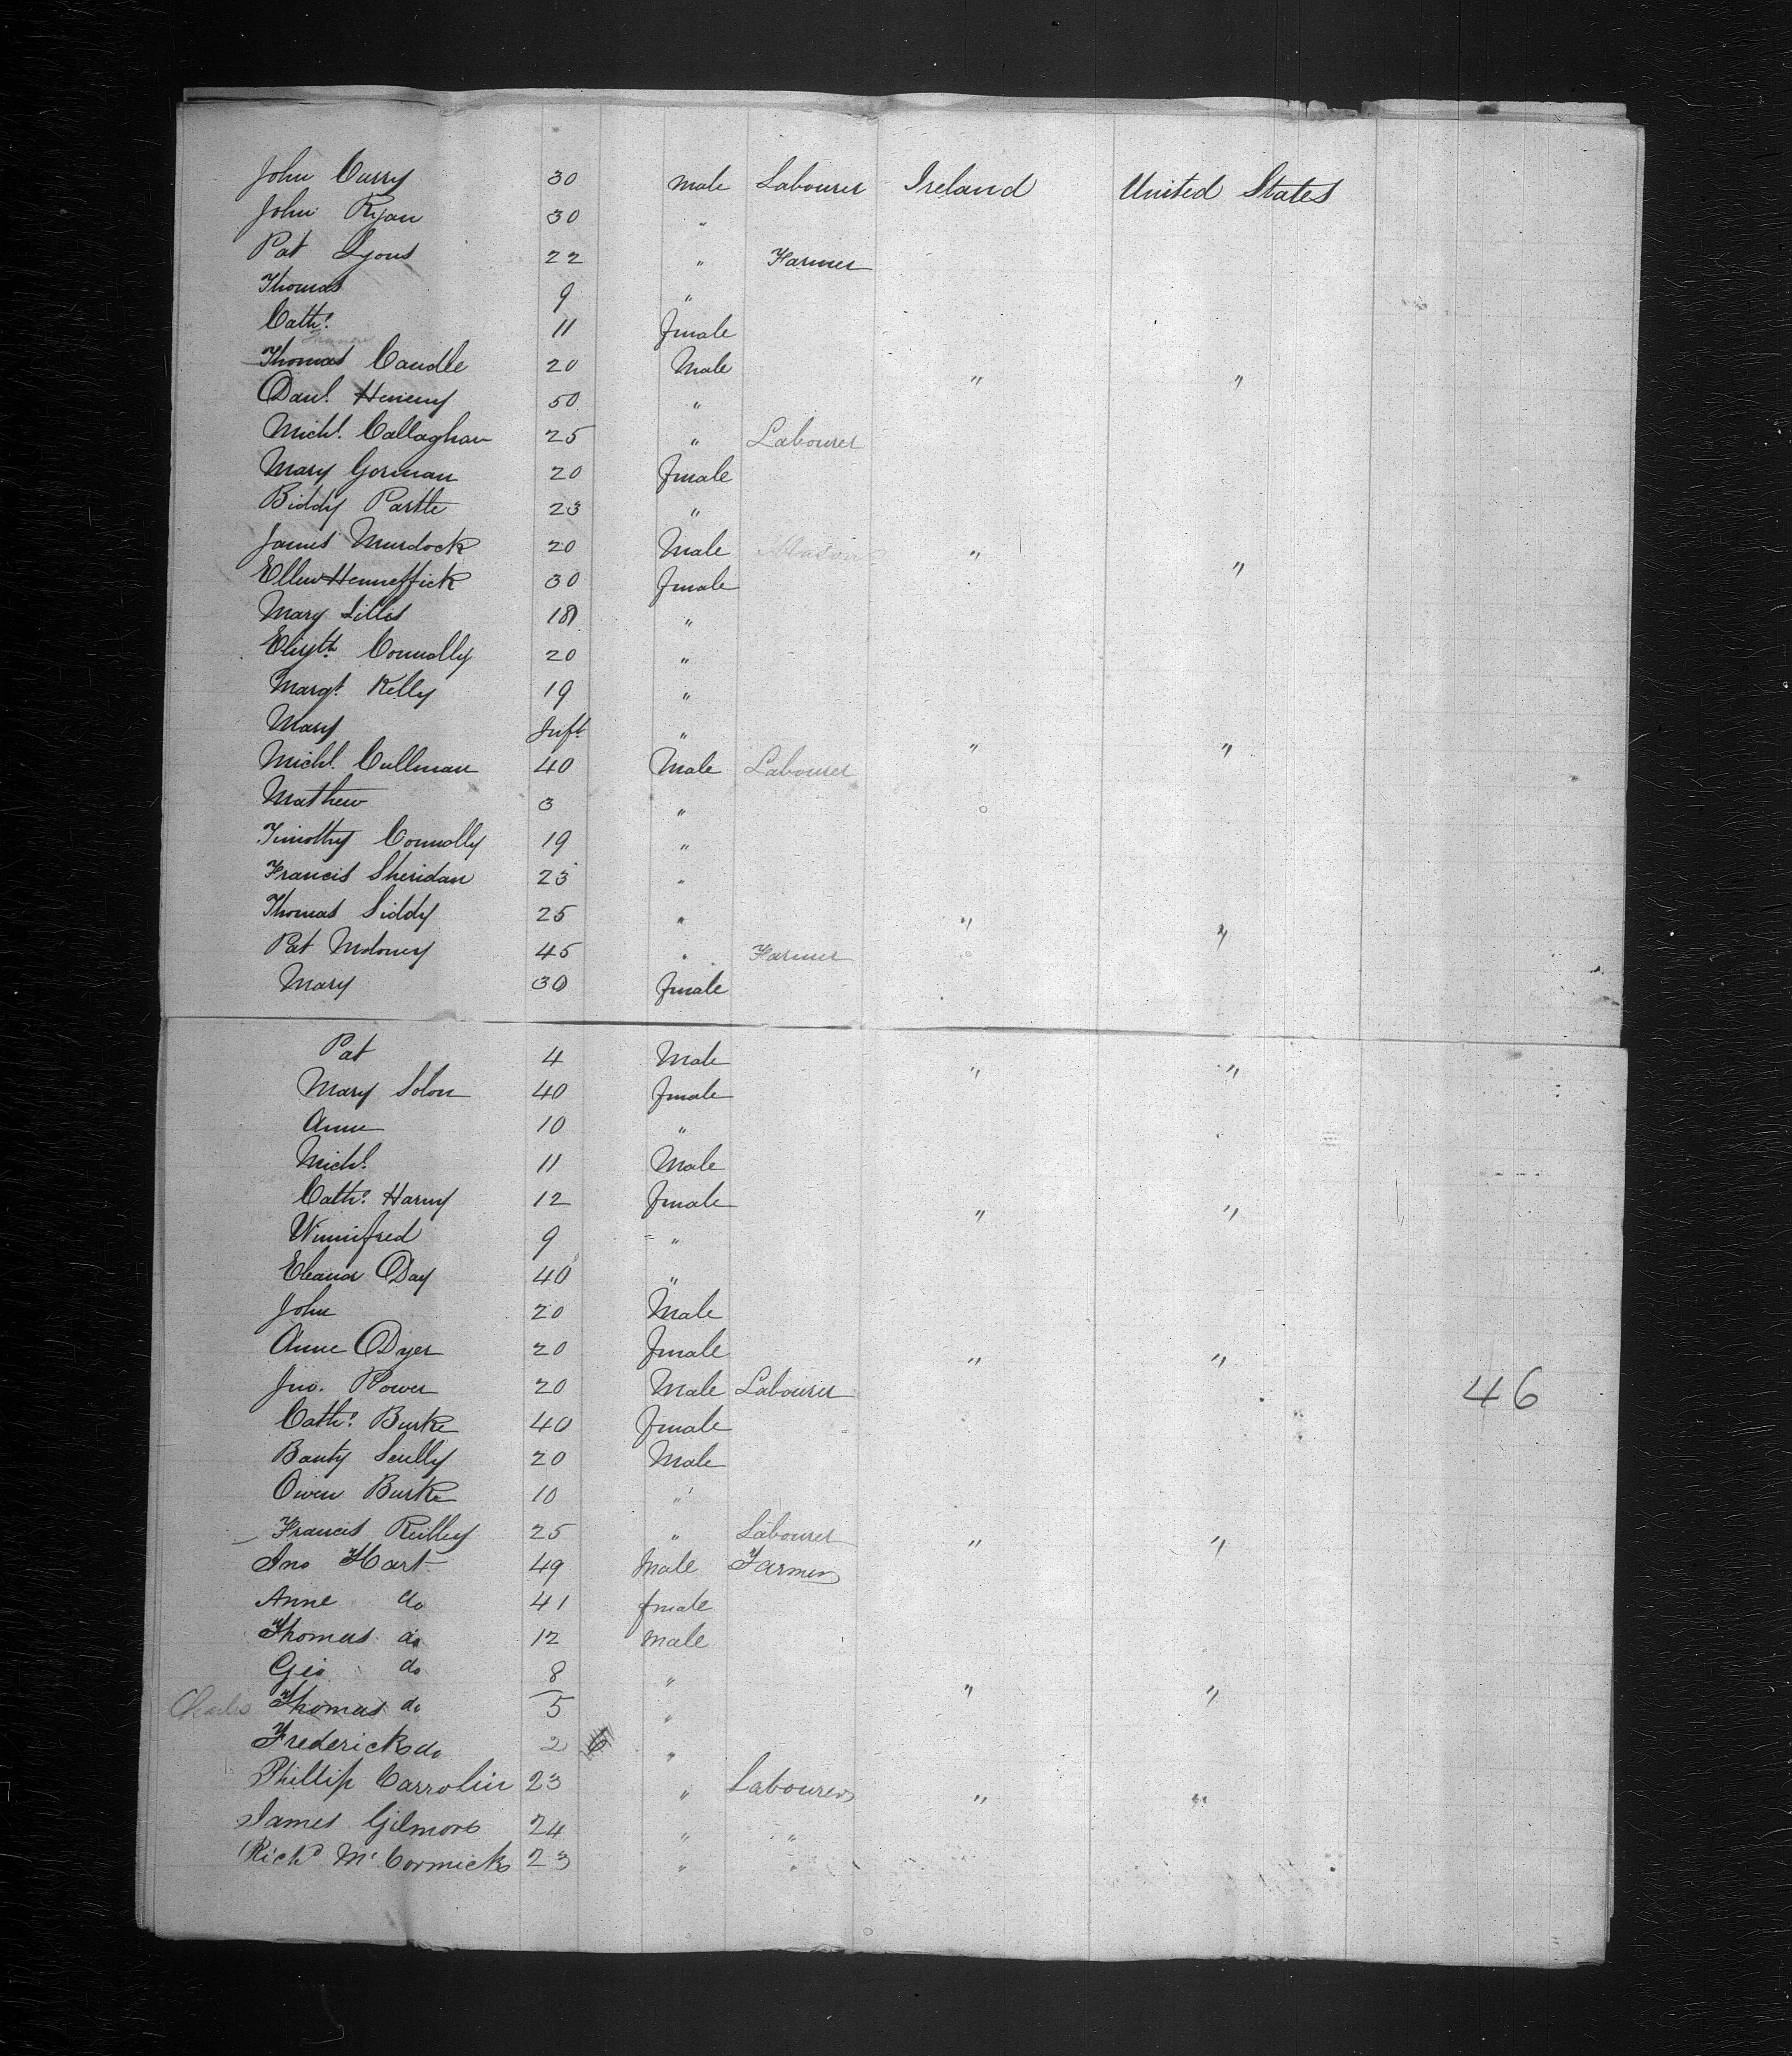 John Curry 30 male Labourer Ireland United States
John Ryan 30 "
Pat Lyons 22 " Farmer
Thomas 9 "
Cathe. 11 fmale
Thomas Caudle 20 Male " "
Danl. Heneny 50 "
Michl. Callaghan 25 " Labourer
Mary Gorman 20 fmale
Biddy Partle 23 "
James Murdock 20 Male Mason " "
Ellen Henneffick 30 fmale
Mary Lillis 18 "
Elizth. Connolly 20 "
Margt. Kelly 19 "
Mary Inft " " "
Michl. Cullinan 40 Male Labourer
Mathew 3 "
Timothy Connolly 19 "
Francis Sheridan 23 "
Thomas Liddy 25 " " "
Pat Moloney 45 " Farmer
Mary 30 fmale
Pat 4 Male " "
Mary Solon 40 fmale
Anne 10 "
Michl. 11 Male
Cathe. Harny 12 fmale " "
Winnifred 9 "
Eleanor Day 40 "
John 20 Male
Anne Dyer 20 fmale " "
Jno. Power 20 Male Labourer 46
Cathe. Burke 40 fmale
Banty Scully 20 Male
Owen Burke 10 "
Francis Reilley 25 " Labourer " "
Jno Hart 49 Male Farmer
Anne do 41 fmale
Thomas do 12 male
Geo do 8 " " "
Charles Thomas do 5 "
Frederick do 2 6 "
Phillip Carrolin 23 " Labourer " "
James Gilmore 24 " "
Richd McCormick 23 " "